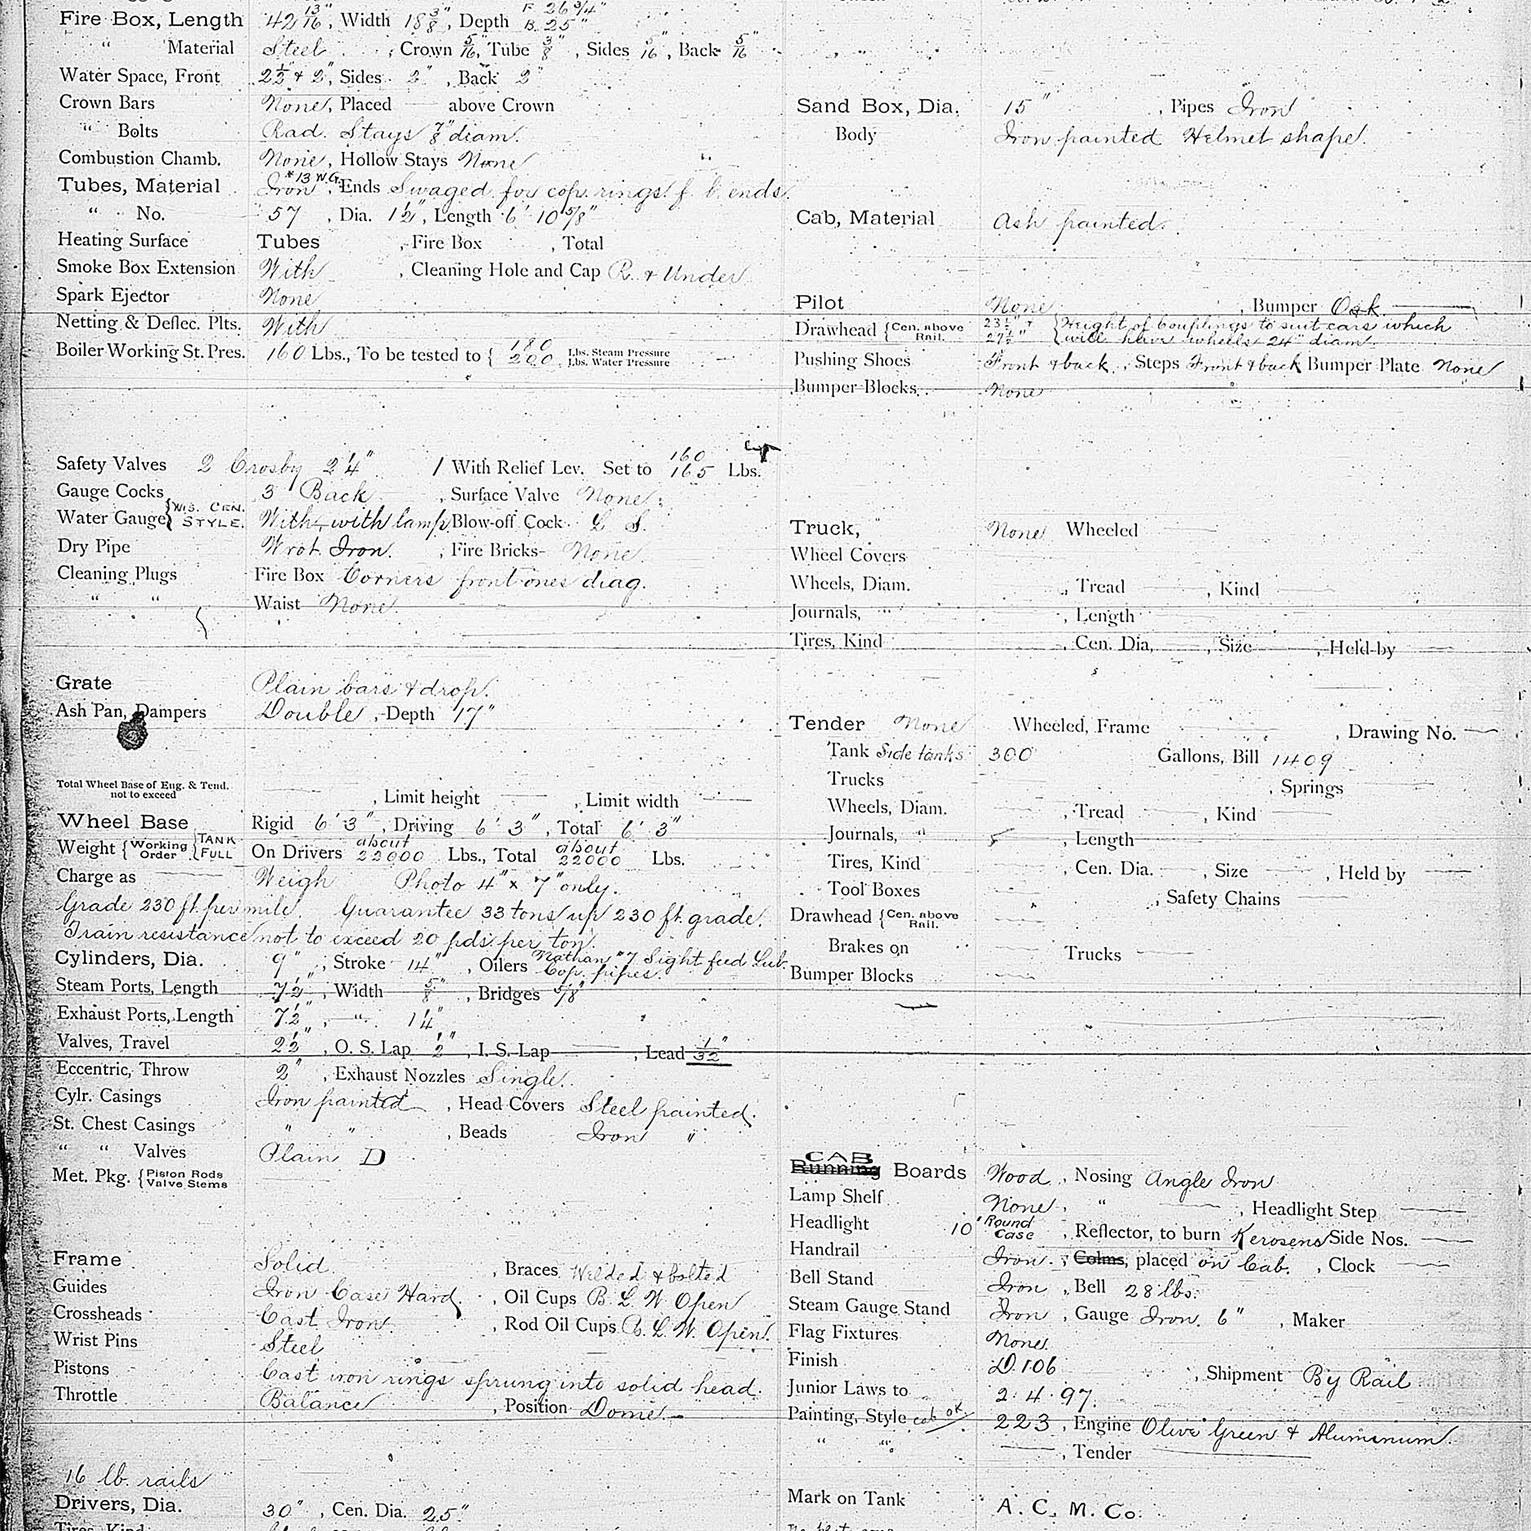 Fire Box, Length 42 13/16", Width 18 3/8", Depth F. 26 3/4" B. 25"
" Material Steel, Crown 5/16", Tube 3/8", Sides 5/16", Back 5/16"
Water Space, Front 2 1/2" & 2", Sides 2", Back 2"
Crown Bars None, Placed — above Crown
" Bolts Rad. Stays 7/8" diam.
Combustion Chamb. None, Hollow Stays None
Tubes, Material Iron #13 W.G., Ends Swaged for cop. rings f. b. ends.
" No. 57, Dia. 1 1/2", Length 6' 10 5/8"
Heating Surface Tubes , Fire Box , Total
Smoke Box Extension With , Cleaning Hole and Cap R. & Under
Spark Ejector None
Netting & Deflec. Plts. With
Boiler Working St. Pres. 160 Lbs., To be tested to { 180 Lbs. Steam Pressure 200 Lbs. Water Pressure
Safety Valves 2 Crosby 2 1/4" 1 With Relief Lev. Set to 160 165 Lbs.
Gauge Cocks 3 Back , Surface Valve None
Water Gauge { WIS. CEN. STYLE. With, with lamp, Blow-off Cock L. S.
Dry Pipe Wrot. Iron. , Fire Bricks None
Cleaning Plugs Fire Box Corners front ones diag.
" " Waist None.
Grate Plain bars & drop.
Ash Pan, Dampers Double, Depth 17"
Total Wheel Base of Eng. & Tend. not to exceed — , Limit height — , Limit width —
Wheel Base Rigid 6' 3", Driving 6' 3", Total 6' 3"
Weight { Working Order } { TANK FULL On Drivers about 22000 Lbs., Total about 22000 Lbs.
Charge as — Weigh Photo 4" x 7" only.
Grade 230 ft. per mile. Guarantee 33 tons up 230 ft. grade.
Train resistance not to exceed 20 pds. per ton.
Cylinders, Dia. 9", Stroke 14", Oilers Nathan #7 Sight feed Lub. Cop. pipes.
Steam Ports, Length 7 1/2", Width 5/8", Bridges 5/8"
Exhaust Ports, Length 7 1/2", " 1 1/4"
Valves, Travel 2 1/2", O. S. Lap 1/2", I. S. Lap — , Lead 1/32"
Eccentric, Throw 2", Exhaust Nozzles Single.
Cylr. Casings Iron painted , Head Covers Steel painted.
St. Chest Casings " " , Beads Iron "
" " Valves Plain D
Met. Pkg. { Piston Rods Valve Stems —
Frame Solid. , Braces Welded & bolted
Guides Iron Case Hard. , Oil Cups B. L. W. Open
Crossheads Cast Iron. , Rod Oil Cups B. L. W. Open.
Wrist Pins Steel
Pistons Cast iron rings sprung into solid head.
Throttle Balance , Position Dome.
16 lb. rails
Drivers, Dia. 30", Cen. Dia. 25"
Tires, Kind
Sand Box, Dia. 15" , Pipes Iron
Body Iron painted Helmet shape.
Cab, Material Ash painted.
Pilot None , Bumper Oak.
Drawhead { Cen. above Rail. 23 1/2" & 27 1/2" { Height of couplings to suit cars which will have wheels 24" diam.
Pushing Shoes Front & back, Steps Front & back Bumper Plate None
Bumper Blocks None
Truck, None Wheeled —
Wheel Covers
Wheels, Diam. , Tread — , Kind —
Journals, " , Length —
Tires, Kind , Cen. Dia. — , Size — , Held by —
Tender None Wheeled, Frame — , Drawing No. —
Tank Side tanks 300 Gallons, Bill 1409
Trucks — , Springs —
Wheels, Diam. — , Tread — , Kind —
Journals, " , Length —
Tires, Kind — , Cen. Dia. — , Size — , Held by —
Tool Boxes — , Safety Chains —
Drawhead { Cen. above Rail. —
Brakes on — Trucks —
Bumper Blocks —
CAB
Running Boards Wood , Nosing Angle Iron
Lamp Shelf None, " — , Headlight Step —
Headlight 10" Round Case , Reflector, to burn Kerosene Side Nos. —
Handrail Iron. , Colms, placed on Cab. , Clock —
Bell Stand Iron , Bell 28 lbs.
Steam Gauge Stand Iron , Gauge Iron 6" , Maker
Flag Fixtures None.
Finish D.106 , Shipment By Rail
Junior Laws to 2. 4. 97.
Painting, Style cab OK. 223 , Engine Olive Green & Aluminum.
" " — , Tender —
Mark on Tank A. C. M. Co.